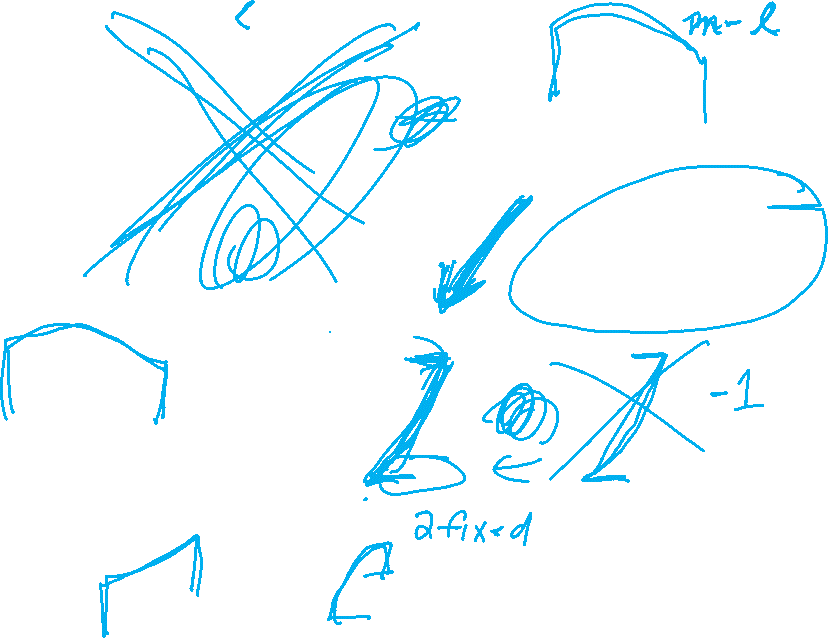 m-l
-1
2 fixed